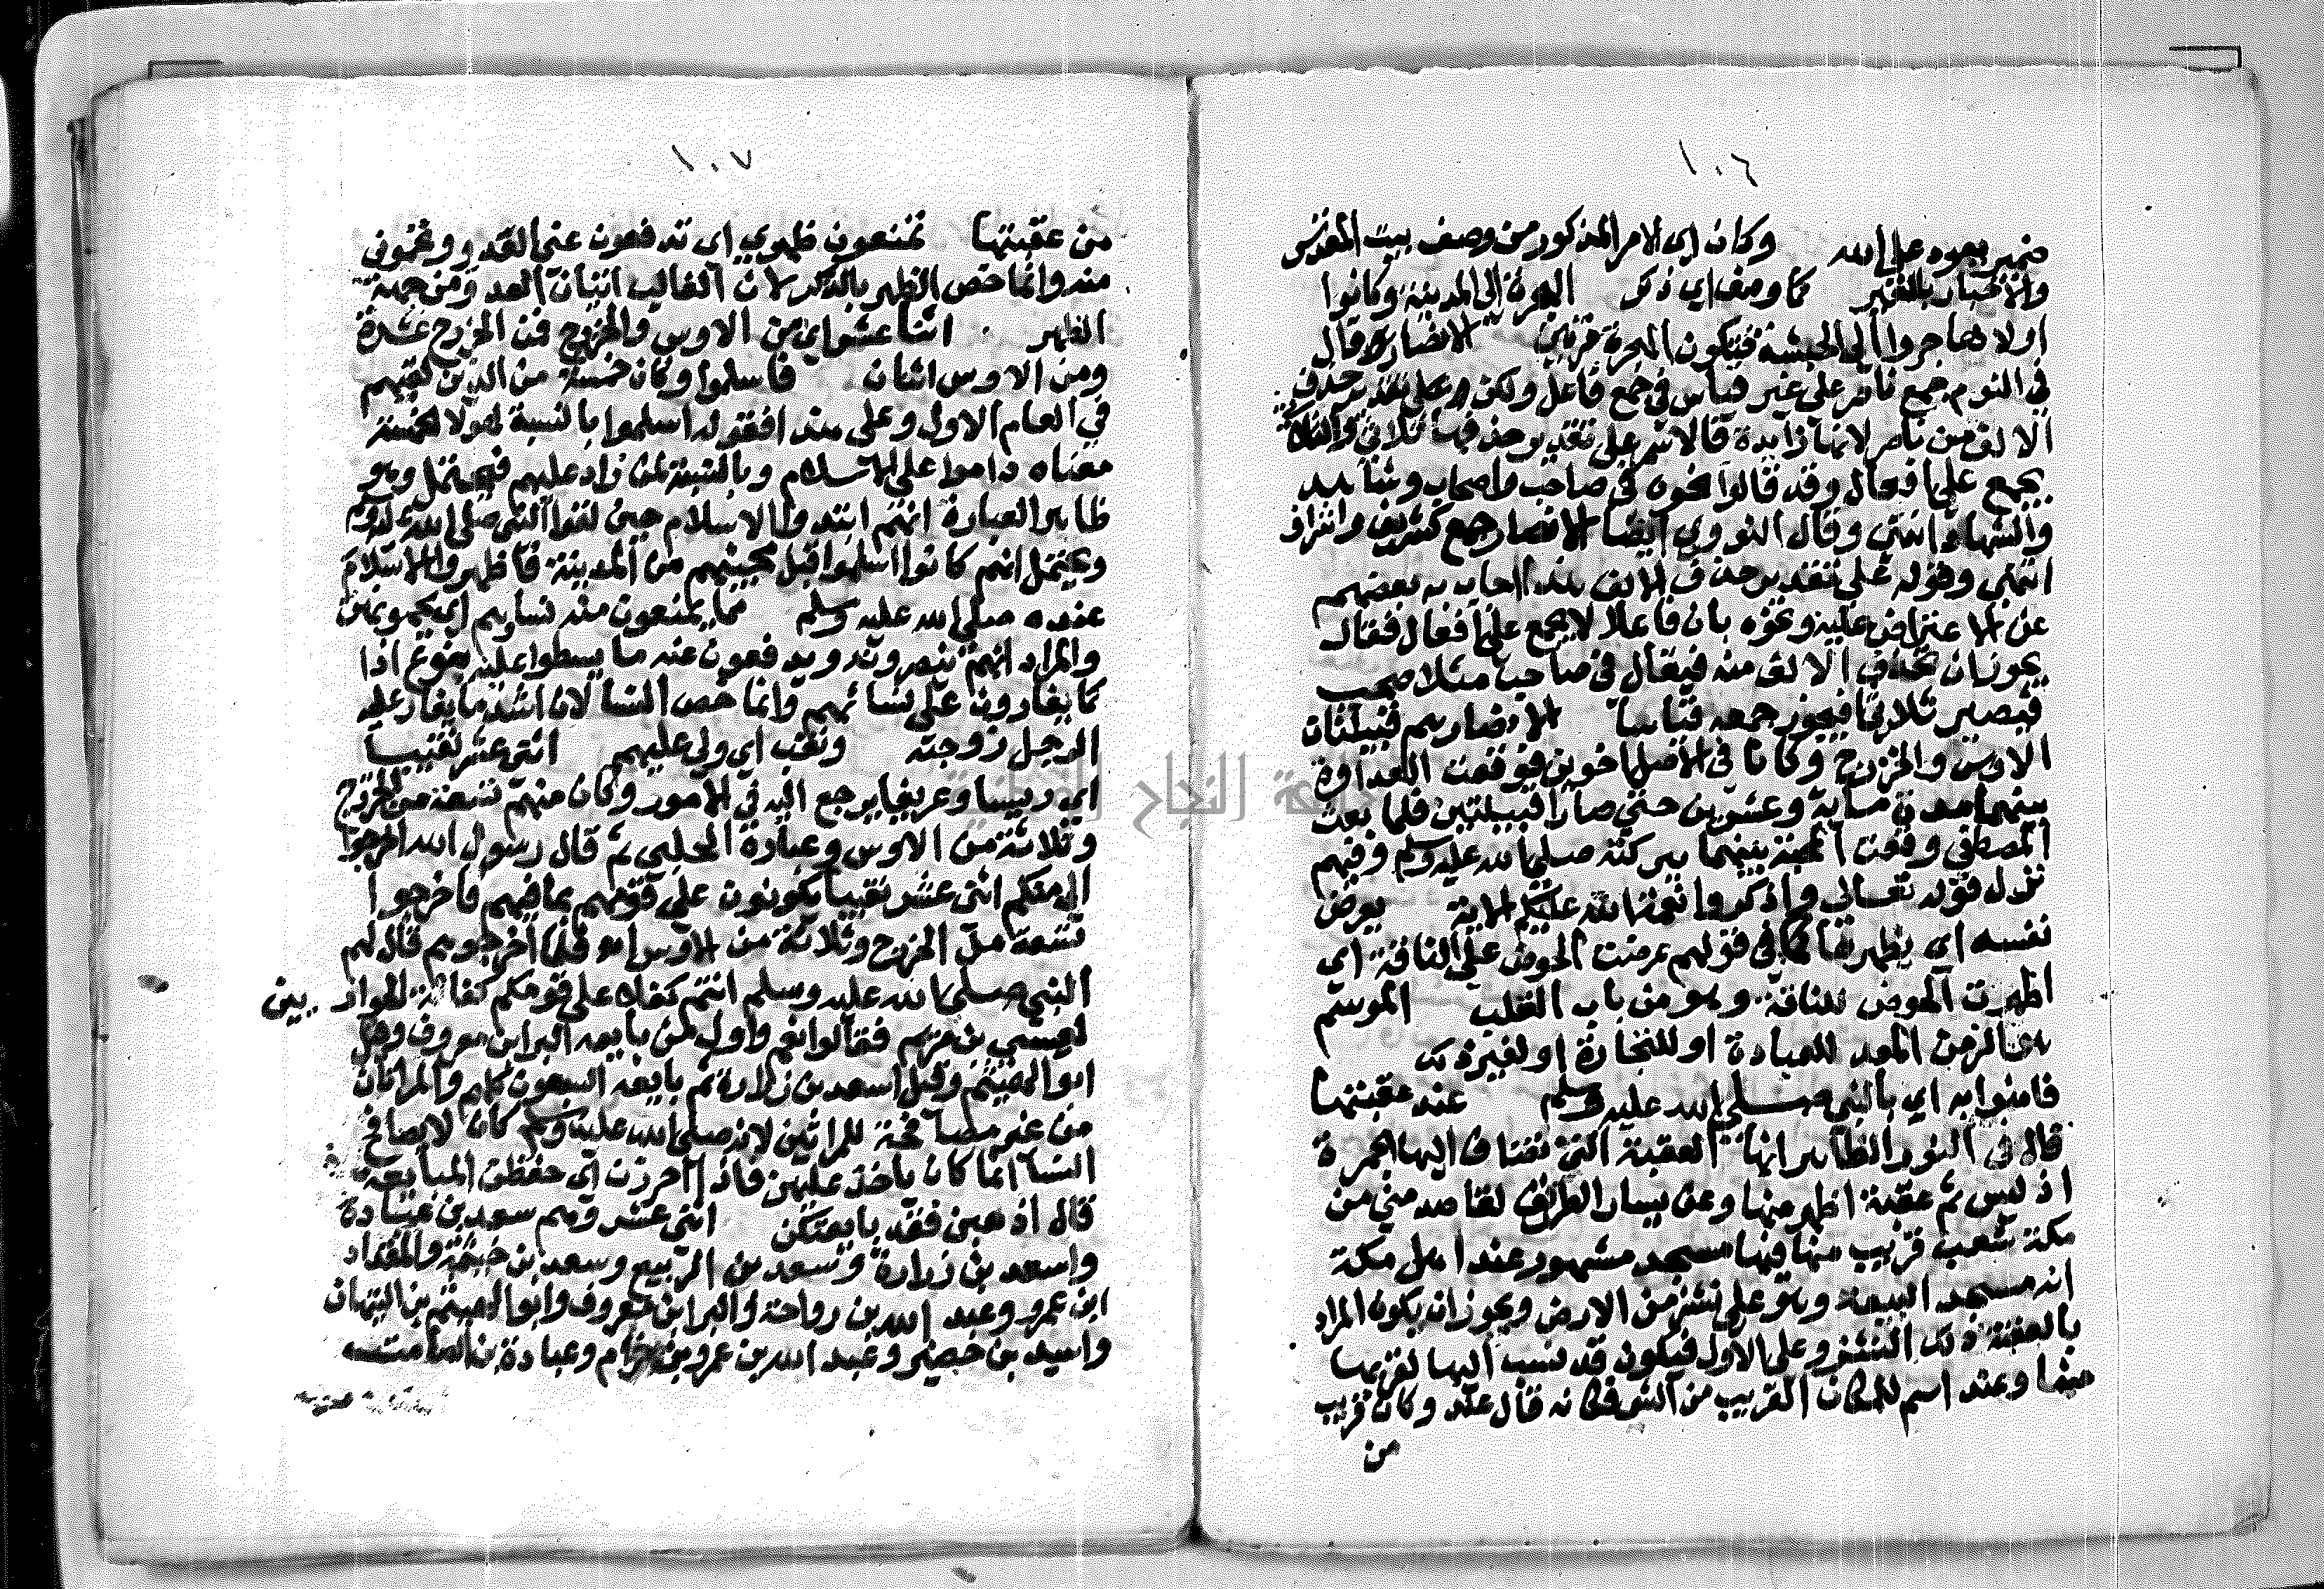 ١٠٦
ضمير يعود على الله وكان اى الامر المذكور من وصف بيت المقدس
والاخبار بالعير كما وصف اي ذكر الهجرة الى المدينة وكانوا
اولا هاجروا الى الحبشة فتكون الهجرة مرتين الانصار قال
في النور جمع ناصر على غير قياس في جمع فاعل ولكن على تقدير حذف
الالف من ناصر لانها زائدة فالاسم على تقدير حذفها ثلاثي والثلاثي
يجمع على افعال وقد قالوا نحوه في صاحب واصحاب وشاهد
واشهاد انتهى وقال النووي ايضا الانصار جمع كشريف واشراف
انتهى وقوله على تقدير حذف الالف هذا اجاب به بعضهم
عن الاعتراض عليه ونحوه بان فاعلا لا يجمع على افعال فقال
يجوز ان تحذف الالف منه فيقال في صاحب مثلا صحب
فيصير ثلاثيا فيجوز جمعه قياسا الانصار هم قبيلتان
الاوس والخزرج وكانا في الاصل اخوين فوقعت العداوة
بينهما مدة مائة وعشرين حتى صارا قبيلتين فلما بعث
المصطفى وقعت المحبة بينهما ببركته صلى الله عليه وسلم وفيهم
نزل قوله تعالى واذكروا نعمة الله عليكم الاية يعرض
نفسه اى يظهرها كما في قولهم عرضت الحوض على الناقة اى
اظهرت الحوض للناقة وهو من باب القلب الموسم
هو الزمن المعد للعبادة او للتجارة او لغير ذلك
فامنوا به اي بالنبي صلى الله عليه وسلم عند عقبتها
قال في النور الظاهر انها العقبة التي تضاف اليها الجمرة
اذ ليس ثم عقبة اظهر منها وعن يسار الطريق لقاصد منى من
مكة شعب قريب منها فيها مسجد مشهور عند اهل مكة
انه مسجد البيعة وهو على نشز من الارض ويجوز ان يكون المراد
بالعقبة ذلك النشز وعلى الاول فيكون قد نسب اليها لقربها
منها وعند اسم للمكان القريب من الشي فكانه قال عند وكان قريب
من
١٠٧
من عقبتها تمنعون ظهري اى تدفعون عني العدو وتحمون
منه وانما خص الظهر بالذكر لان الغالب اتيان العدو من جهة
الظهر اثنا عشر اى من الاوس والخزرج فمن الخزرج عشرة
ومن الاوس اثنان فاسلموا وكان خمسة من الذين لقيهم
في العام الاول وعلى هذا فقوله اسلموا بالنسبة لهولا الخمسة
معناه داموا على الاسلام وبالنسبة لمن زاد عليهم فيحتمل وهو
ظاهر العبارة انهم ابتدوا الاسلام حين لقوا النبي صلى الله عليه وسلم
ويحتمل انهم كانوا اسلموا قبل مجيئهم من المدينة فاظهروا الاسلام
عنده صلى الله عليه وسلم مما يمنعون منه نساوهم اى يحمونهن
والمراد انهم ينصرونه ويدفعون عنه ما يسطوا عليه بنوع اذا
كما يغارون على نسائهم وانما خص النسا لان اشد ما يغار عليه
الرجل زوجته ونقب اى ولى عليهم اثنى عشر نقيبا
اي رئيسا وعريفا يرجع اليه في الامور وكان منهم تسعة من الخزرج
وثلاثة من الاوس وعبارة الحلبي ثم قال رسول الله اخرجوا
الى منكم اثنى عشر نقيبا يكونون على قومهم بما فيهم فاخرجوا
تسعة من الخزرج وثلاثة من الاوس اهـ فلما اخرجوهم قال لهم
النبي صلى الله عليه وسلم انتم كفلا على قومكم كفالة الحواريين
لعيسى بن مريم فقالوا نعم واول من بايعه البرا بن معرور وقيل
ابو الهيثم وقيل اسعد بن زرارة ثم بايعه السبعون كلهم والمراتان
من غير مصافحة للمراتين لانه صلى الله عليه وسلم كان لا يصافح
النسا انما كان ياخذ عليهن فاذا احرزت اى حفظن المبايعة
قال اذهبن فقد بايعتكن اثنى عشر وهم سعد بن عبادة
واسعد بن زرارة وسعد بن الربيع وسعد بن خيثمة والمقداد
ابن عمرو وعبد الله بن رواحة والبرا بن معرور وابو الهيثم بن التيهان
واسيد بن حضير وعبد الله بن عمرو بن حرام وعبادة بن الصامت